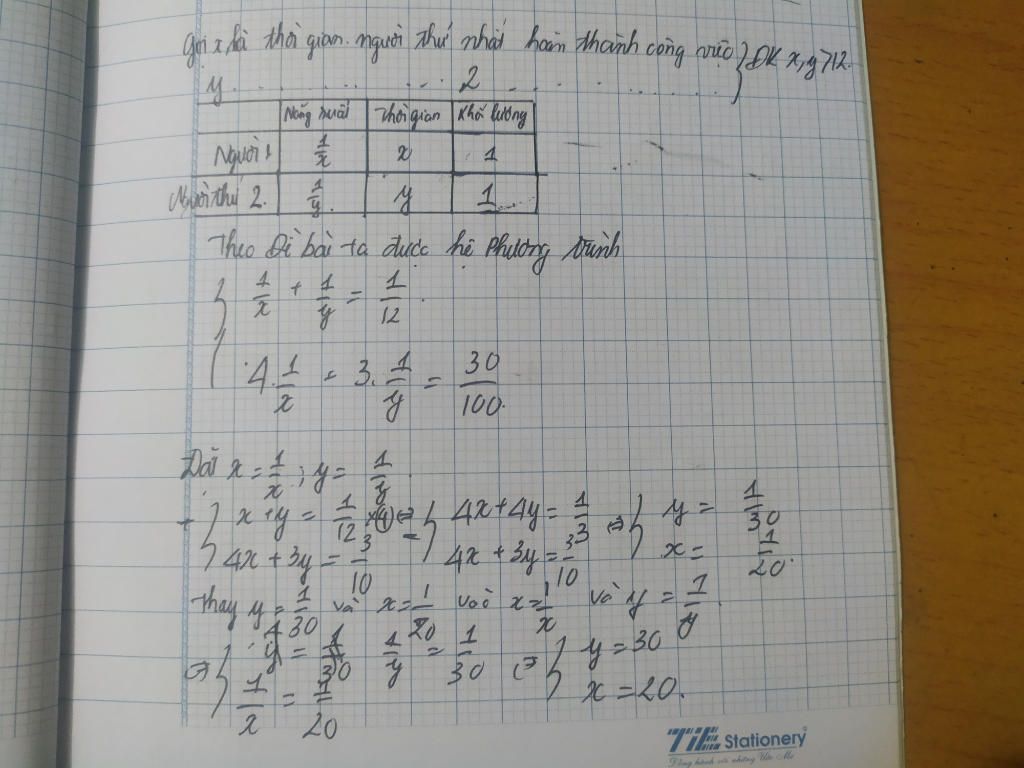 Gọi x là thời gian người thứ nhất hoàn thành công việc } ĐK x, y > 12.
y . . . . . . . . . . . 2 . . . . . . . . . . .
Năng suất Thời gian Khối lượng
Người 1 1/x x 1
Người thứ 2. 1/y. y 1
Theo đề bài ta được hệ phương trình
{ 1/x + 1/y = 1/12.
4. 1/x - 3. 1/y = 30/100.
Đặt x = 1/x ; y = 1/y.
{ x+y = 1/12 x(4) <=> { 4x+4y = 1/3 <=> { y = 1/30
4x+3y = 3/10 4x+3y = 3/10 x = 1/20.
Thay y = 1/30 và x = 1/20 vào x = 1/x và y = 1/y.
<=> { 1/y = 1/30 <=> { y = 30
1/x = 1/20 x = 20.
TiE Stationery
Đồng hành cùng những Ước Mơ